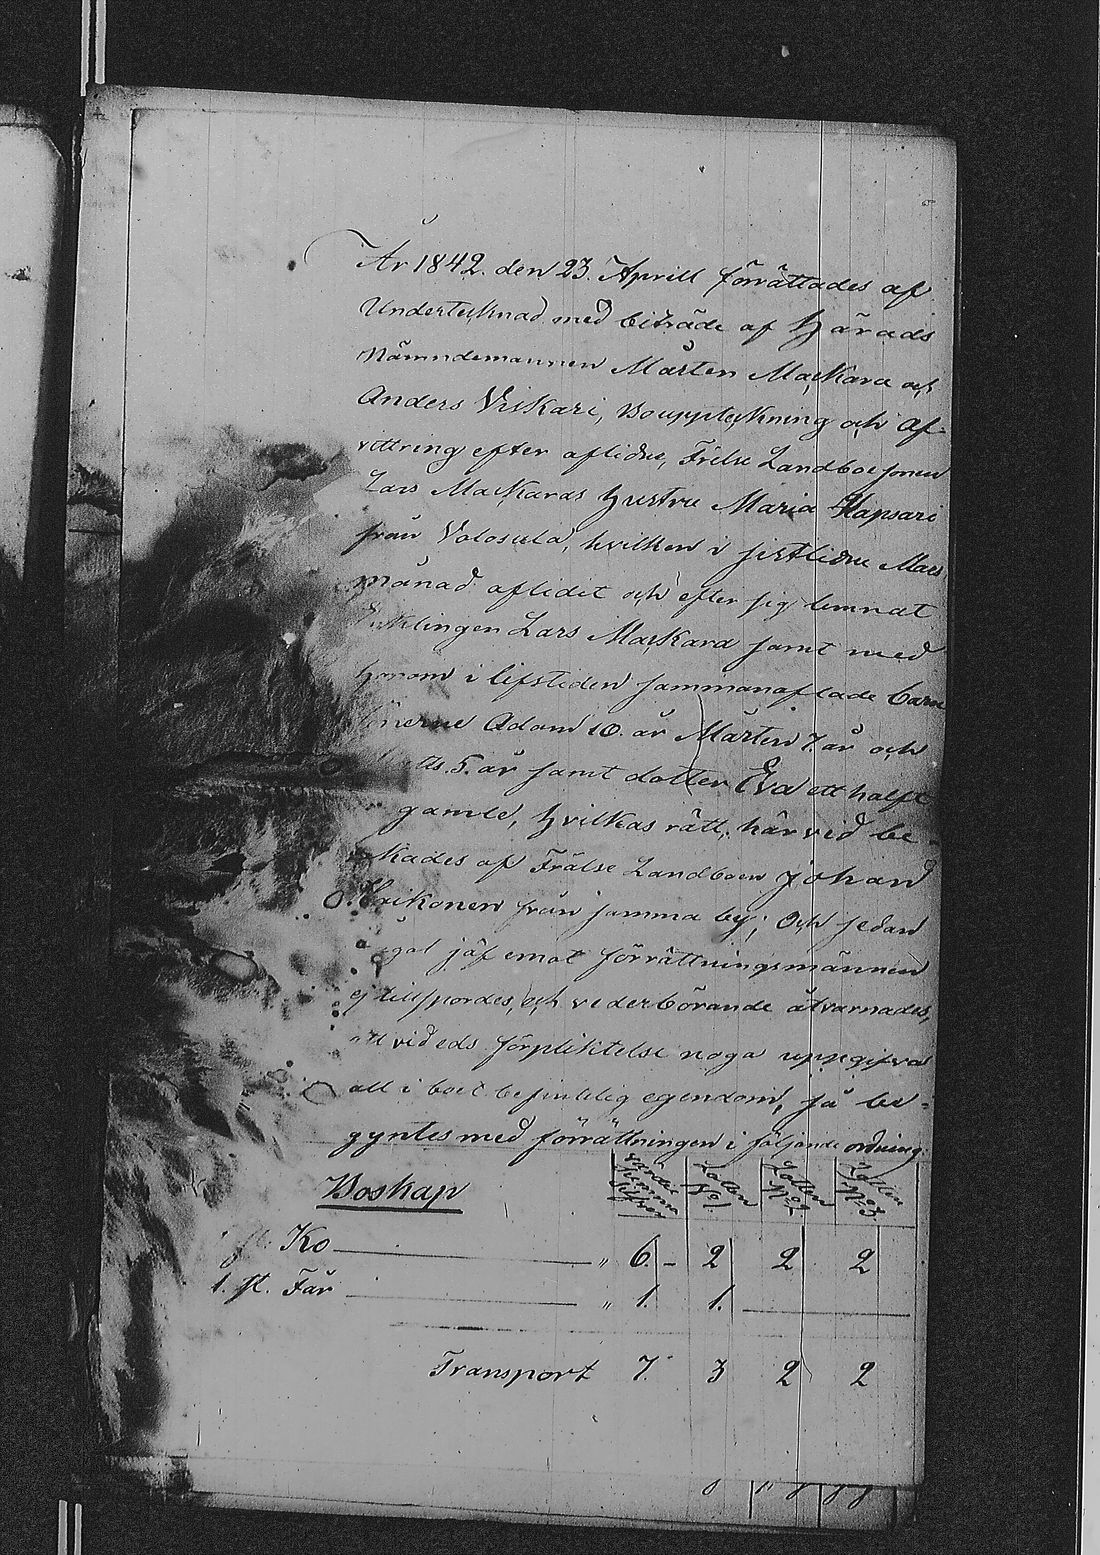 År 1842. den 23. Aprill förrättades af
Undertecknad med biträde af Härads
Nämndemannen Mårten Mackara och
Anders Viskari, Bouppteckning och Af-
vittring efter aflidne, Frelse Landboe sonen
Lars Mackaras hustru Maria Hapsari
från Volosula, hvilken i sistlidne Mars
månad aflidit och efter sig lemnat
Enklingen Lars Mackara samt med
honom i lifstiden sammanaflade barn
sönerne Adam 10. år Mårten 7. år och
5. år samt dotter Eva ett halft
gamle, hvilkas rätt, härvid be-
kades af Frälse Landboen Johan
Erikonen från samma by; Och sedan
något jäf emot förrättningsmännen
ej tillspordes, och vederbörande åtvarnades,
att vid eds förpliktelse noga uppgifva
all i boet befintelig egendom, så be-
gyntes med förrättningen i följande ordning:
Boskap
värde summa Silfver
Lotten No 1
Lotten No 2
Lotten No 3
st. Ko " 6. - 2 2 2
1. st. Får " 1. 1.
Transport 7. 3 2 2